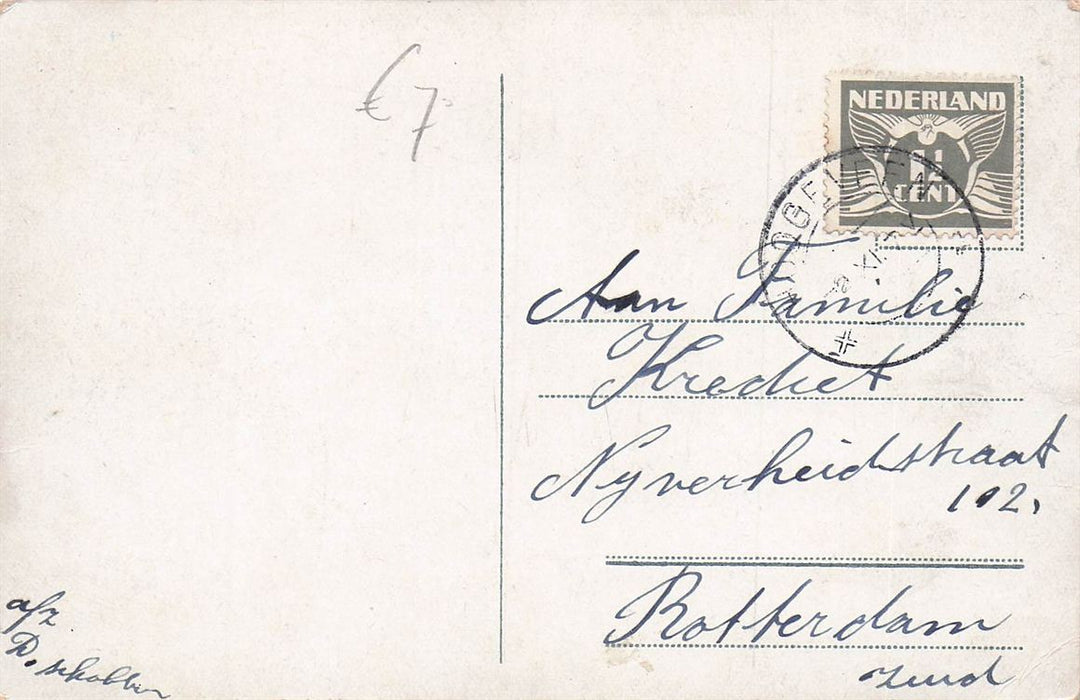 € 7
NEDERLAND
1½
CENT
Aan Familie
Krochet
Nyverheidstraat
102.
Rotterdam
zuid
afz